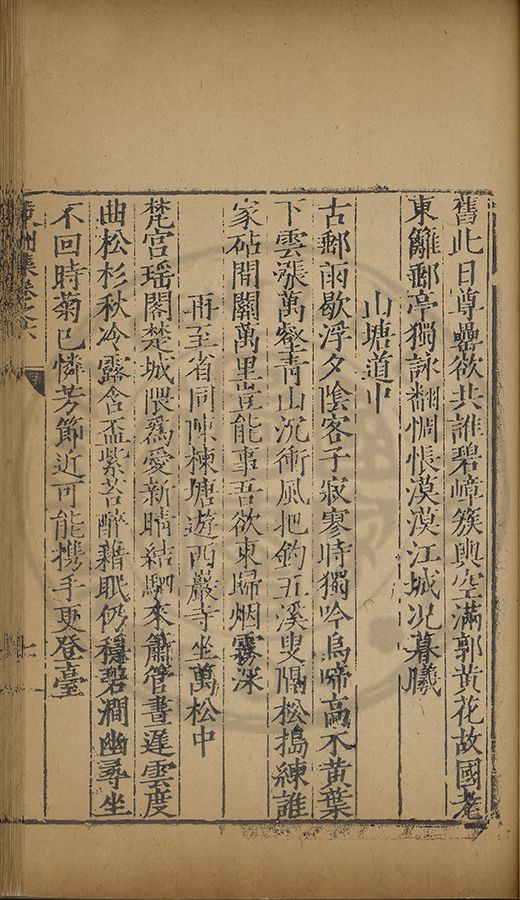 舊此日尊罍欲共誰碧嶂簇輿空滿郭黃花故國老
東籬郵亭獨詠翻惆悵漠漠江城況暮曦
山塘道中
古郵雨歇浮夕陰客子寂寥時獨吟烏啼高木黃葉
下雲漲萬壑青山沉衝風把釣五溪叟隔松搗練誰
家砧間關萬里豈能事吾欲東歸烟霧深
再至省同陳棟塘遊西巖寺坐萬松中
梵宮瑶閣楚城隈爲愛新晴結駟來簫管晝遲雲度
曲松杉秋冷露含盃紫苔醉藉眠仍穩碧澗幽尋坐
不回時菊已憐芳節近可能携手更登臺
州集卷之六